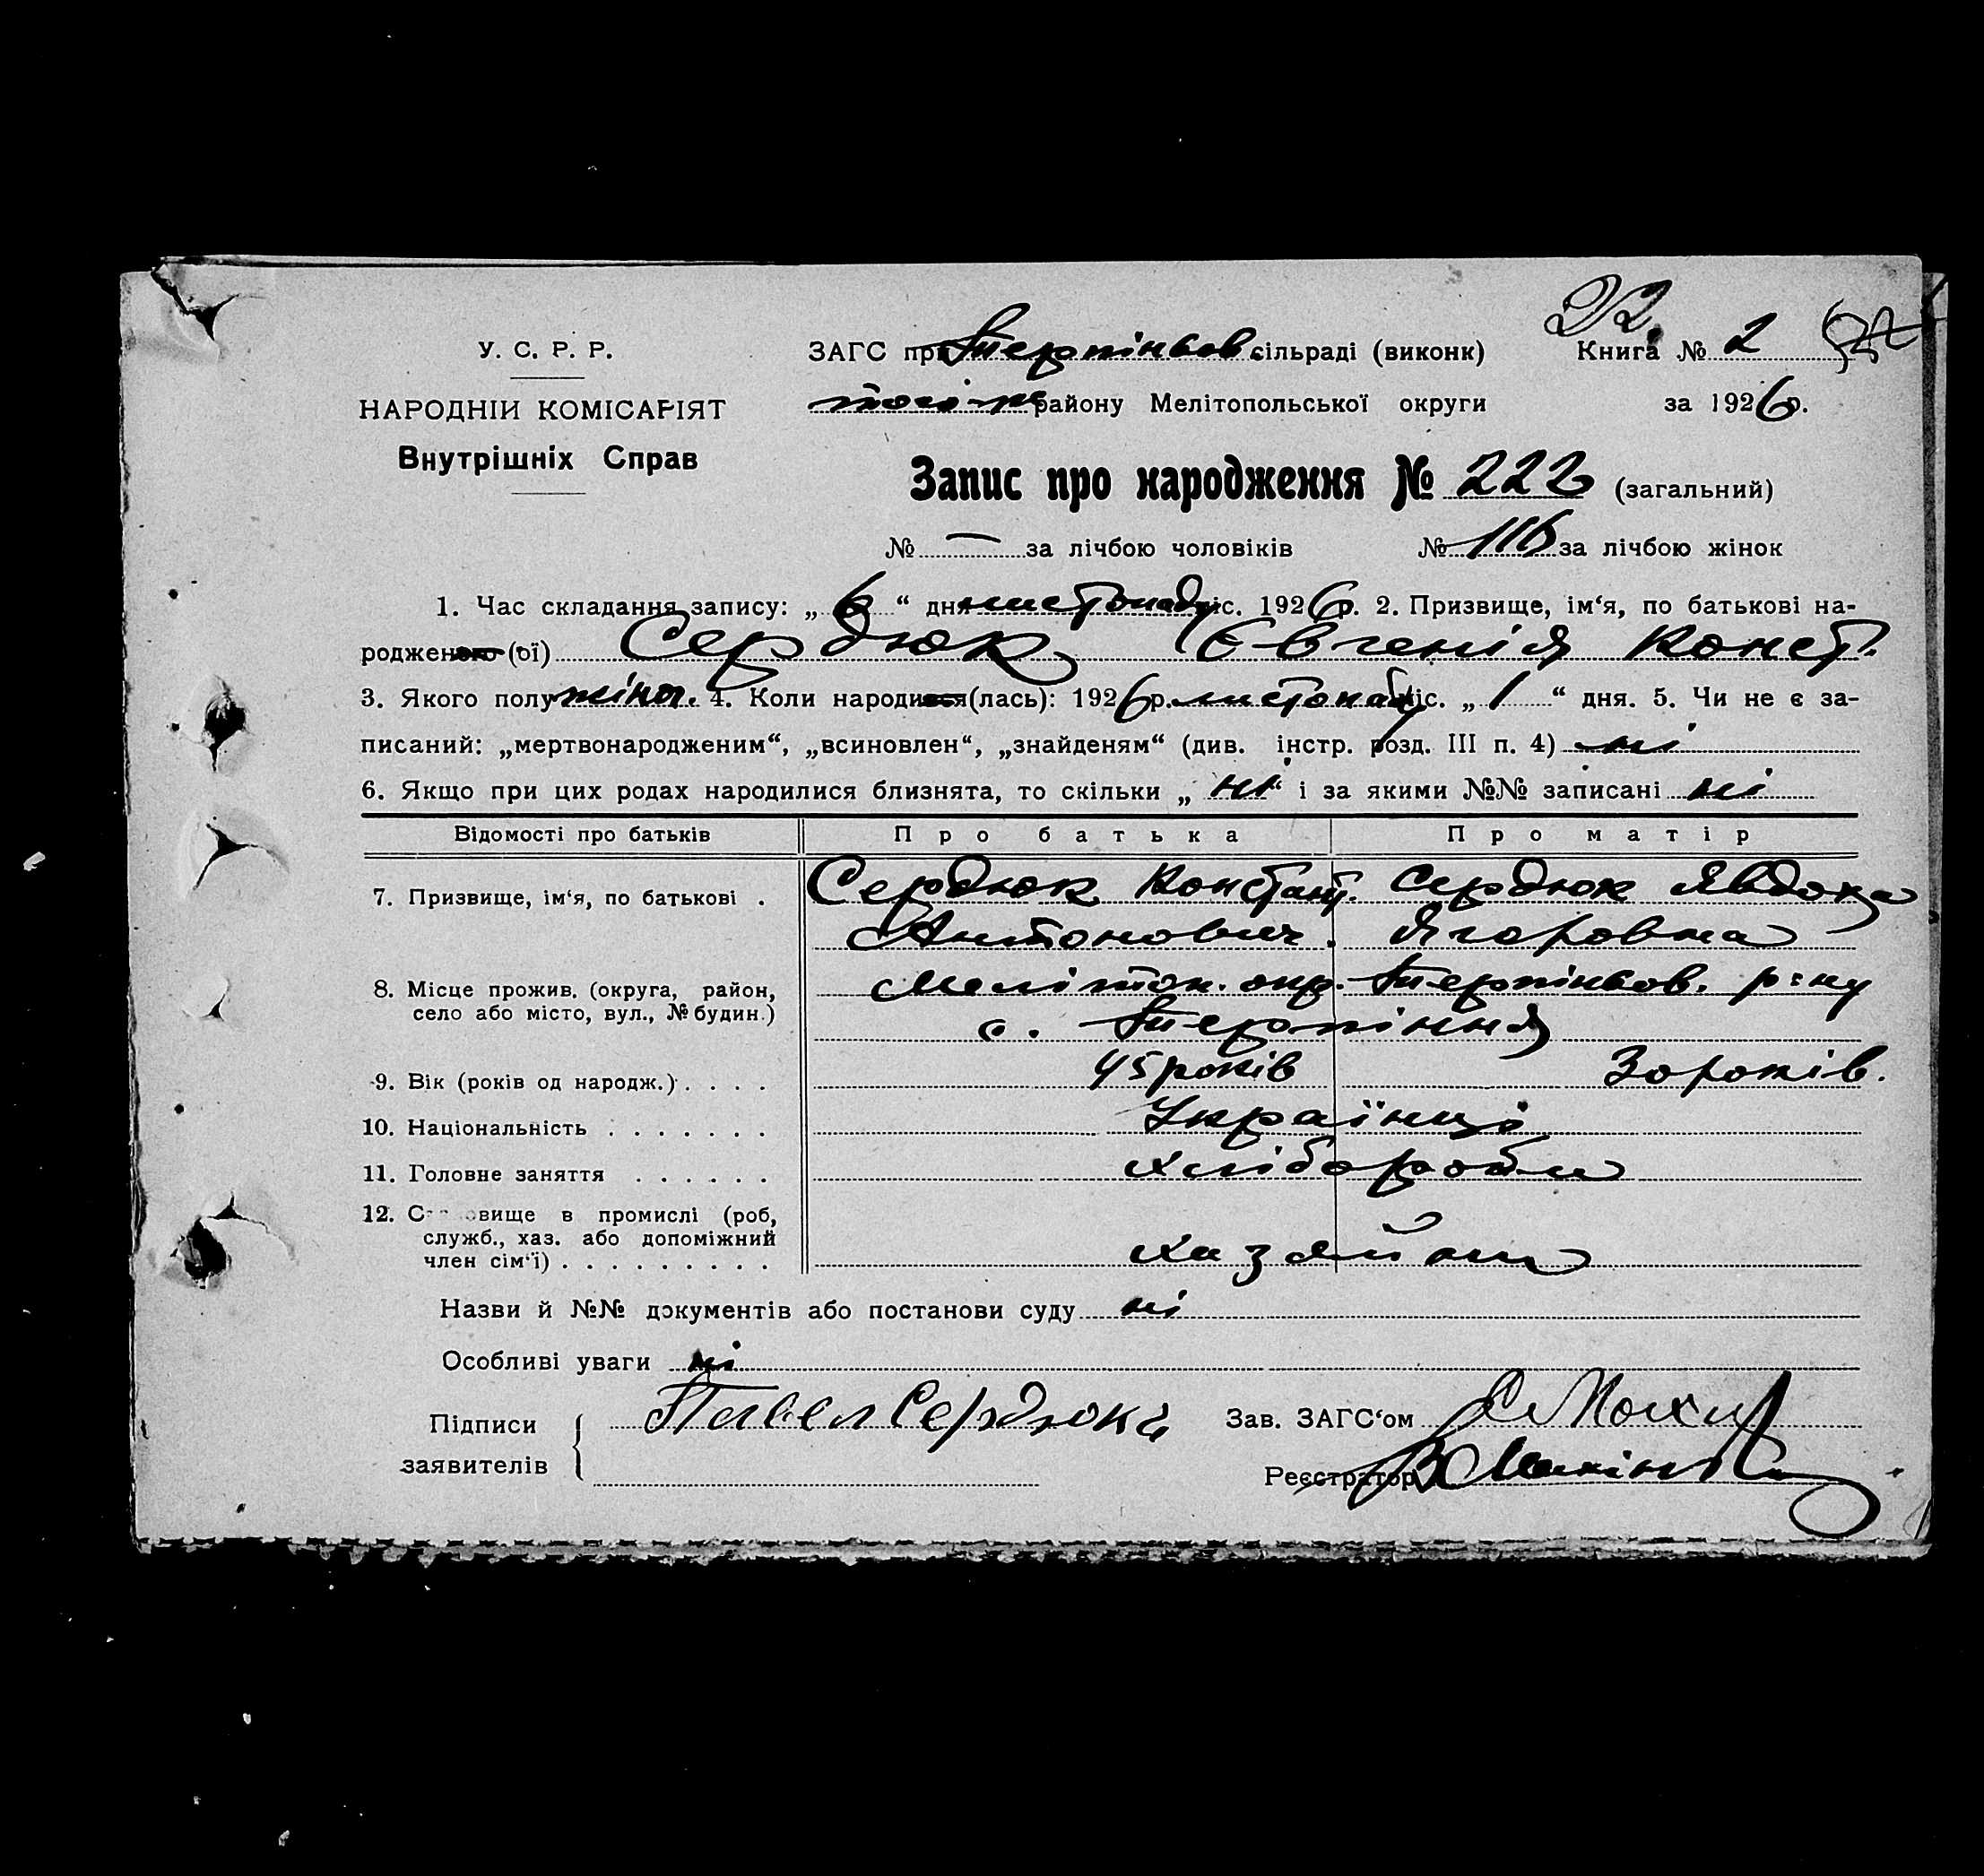 У. С. Р. Р.
НАРОДНІЙ КОМІСАРІЯТ
Внутрішніх Справ
22
ЗАГС при Терпіньов сільраді (виконк) Книга № 2
того-ж району Мелітопольської округи за 1926 р.
Запис про народження № 222 (загальний)
№ — за лічбою чоловіків № 116 за лічбою жінок
1. Час складання запису: „ 6 “ дня листопаду міс. 1926 р. 2. Призвище, ім‘я, по батькові на-
родженого (ої) Сердюк Євгенія Конст.
3. Якого полу жіноч. 4. Коли народився (лась): 1926 р. листопаду міс. „ 1 “ дня. 5. Чи не є за-
писаний: „мертвонародженим“, „всиновлен“, „знайденям“ (див. інстр. розд. III п. 4) ні
6. Якщо при цих родах народилися близнята, то скільки „ ні “ і за якими №№ записані ні
Відомості про батьків Про батька Про матір
7. Призвище, ім‘я, по батькові . Сердюк Констант. Сердюк Явдоха
Антонович. Ягоровна
8. Місце прожив. (округа, район, Мелітоп. окр. Терпіньов. р-ну
село або місто, вул., № будин.) с. Терпіння
9. Вік (років од народж.) . . . . 45 років 30 років.
10. Національність . . . . . . . Українці
11. Головне заняття . . . . . . хлібороби
12. С вище в промислі (роб,
служб., хаз. або допоміжний
член сім‘ї) . . . . . . . . . хазяйни
Назви й №№ документів або постанови суду ні
Особливі уваги ні
Підписи Павел Сердюка Зав. ЗАГС‘ом
заявителів Реєстратор